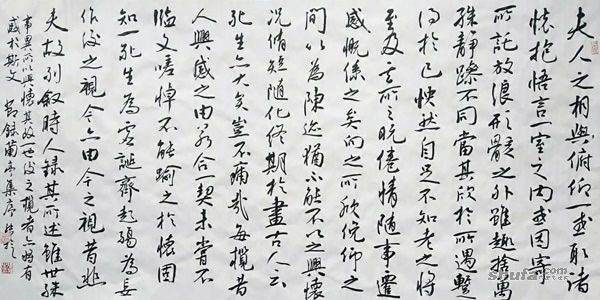 夫人之相與俯仰一世或取諸
懷抱悟言一室之內或因寄
所託放浪形骸之外雖趣捨萬
殊靜躁不同當其欣於所遇蹔
得於己怏然自足不知老之將
至及其所之既倦情隨事遷
感慨係之矣向之所欣俛仰之
間以為陳迹猶不能不以之興懷
況脩短隨化終期於盡古人云
死生亦大矣豈不痛哉每攬昔
人興感之由若合一契未嘗不
臨文嗟悼不能喻之於懷固
知一死生為虛誕齊彭殤為妄
作後之視今亦由今之視昔悲
夫故列敘時人錄其所述雖世殊
事異所以興懷其致一也後之攬者亦將有
感於斯文 節錄蘭亭集序
shufa.com